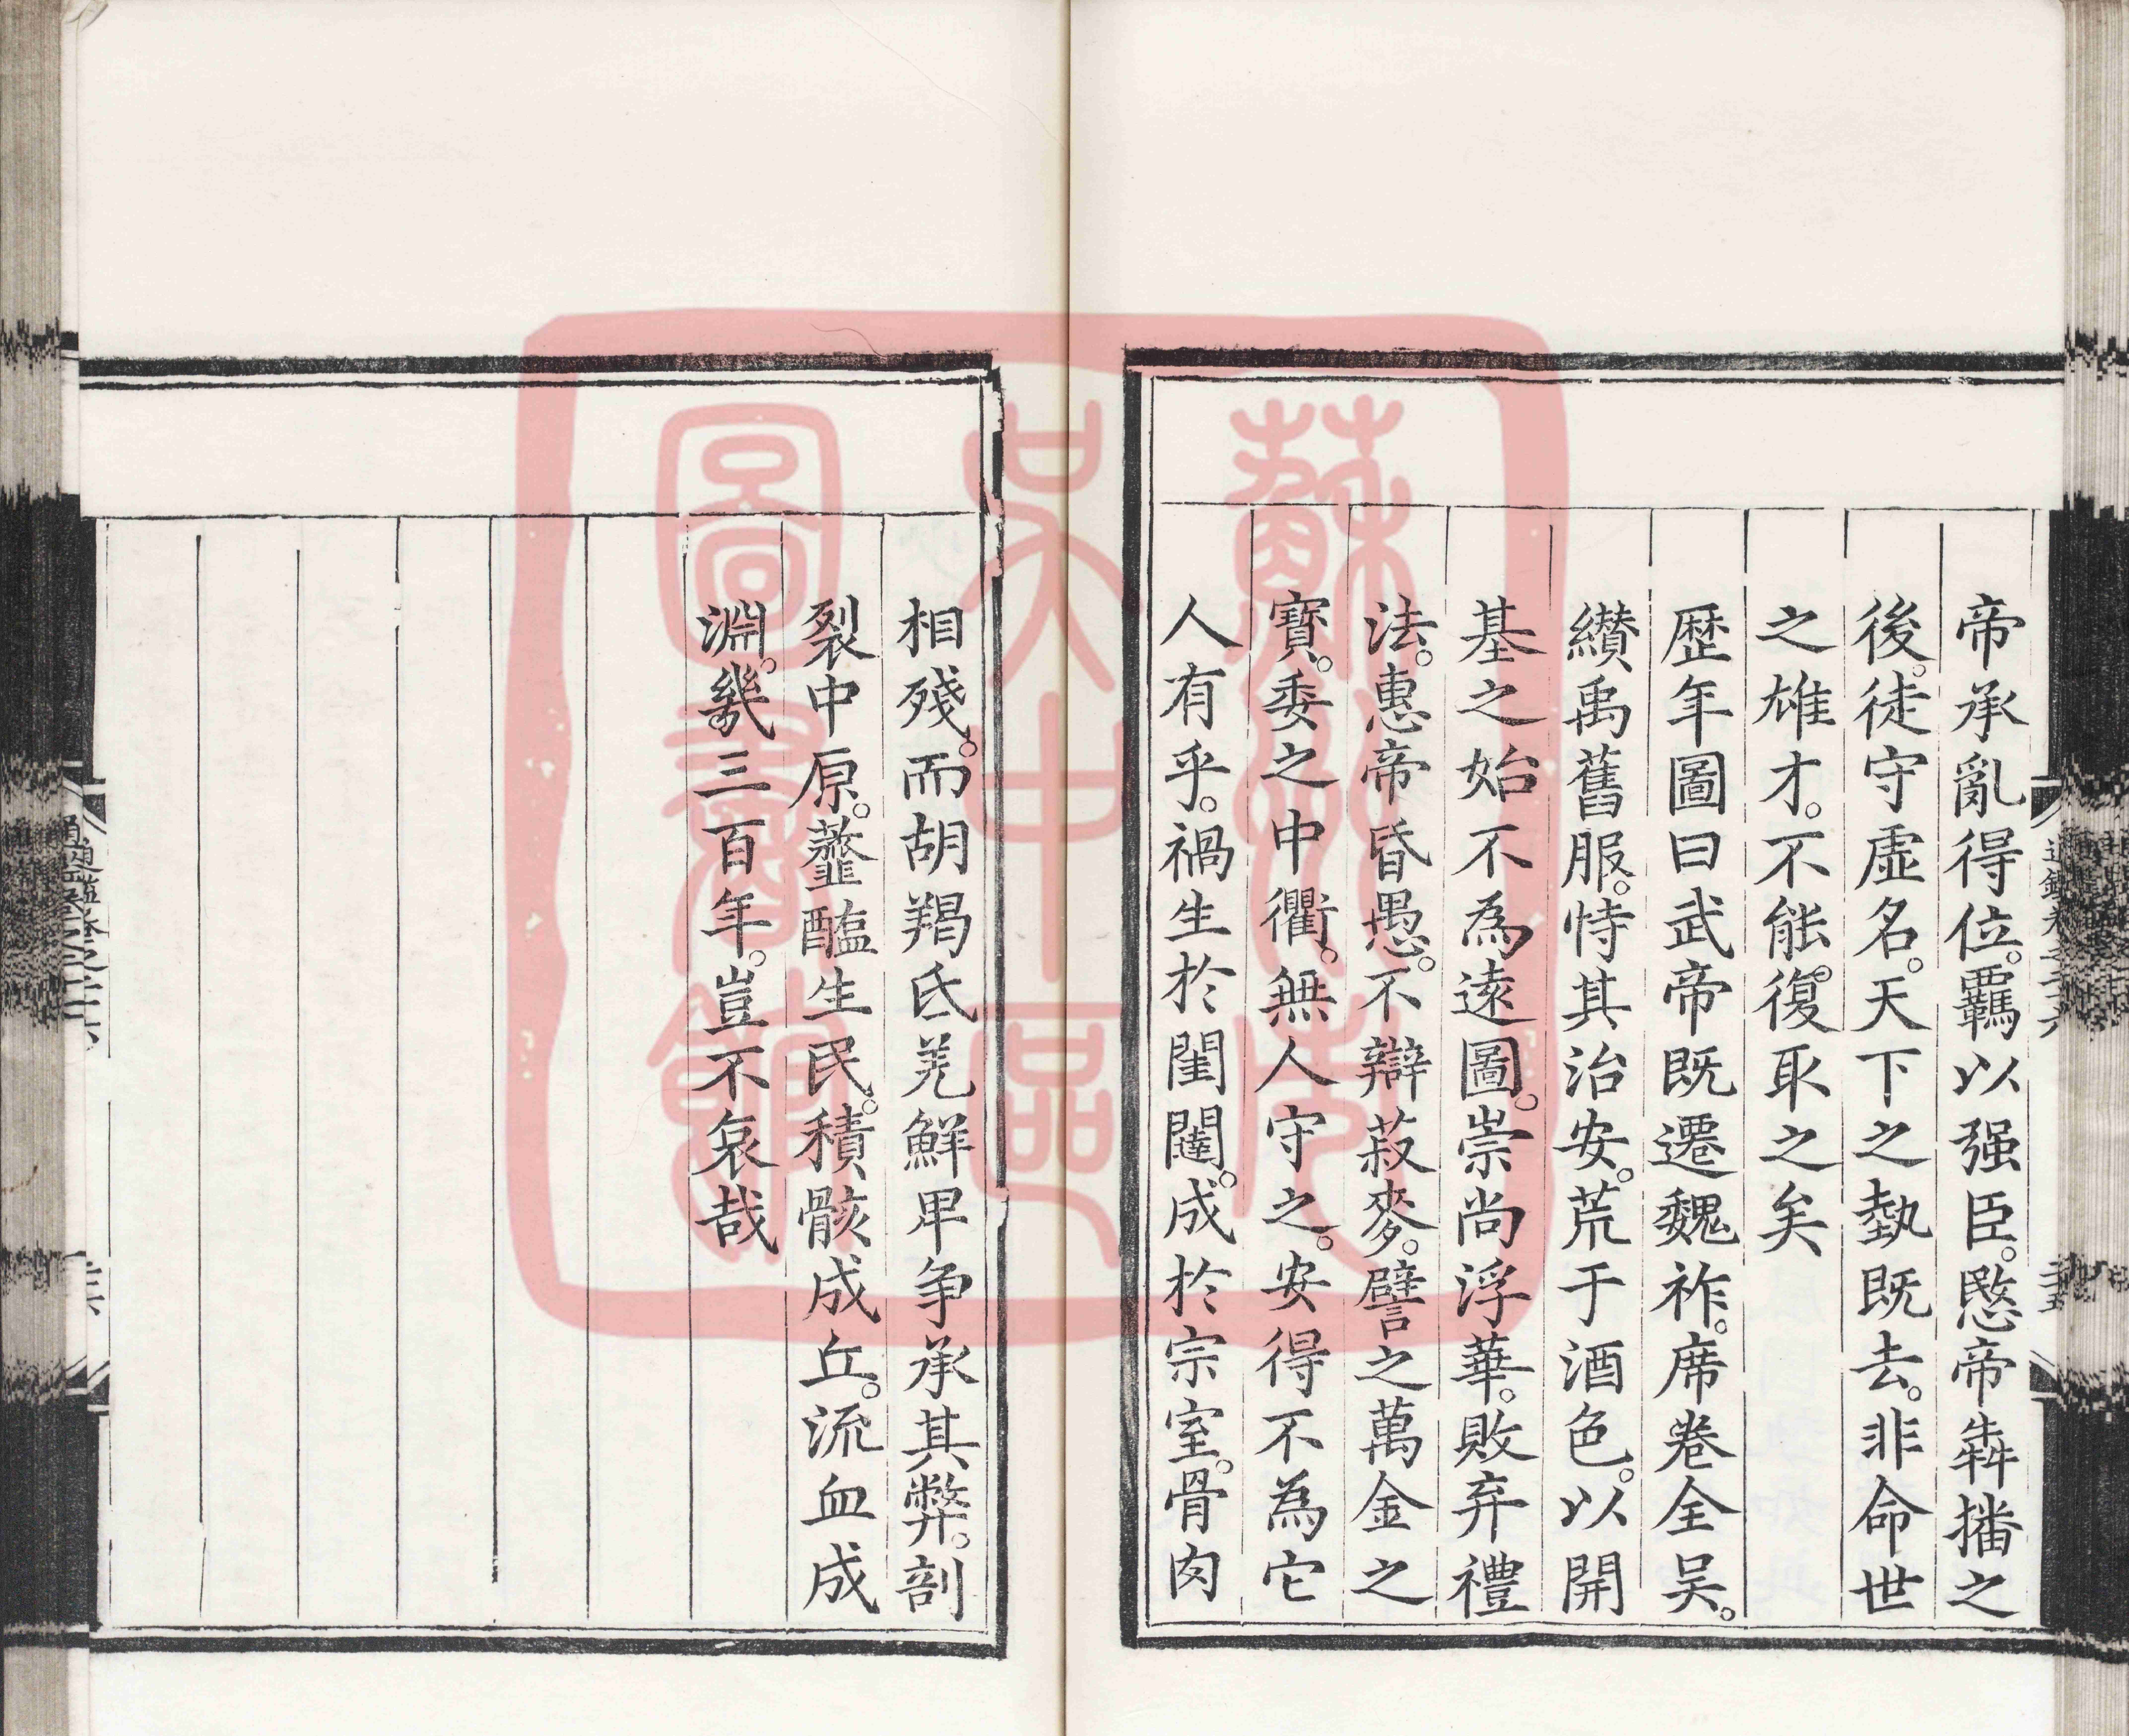 帝承亂得位。羈以强臣。愍帝犇播之
後。徒守虛名。天下之埶既去。非命世
之雄才。不能復取之矣
歷年圖曰武帝既遷魏祚。席卷全吴。
纘禹舊服。恃其治安。荒于酒色。以開
基之始不為遠圖。崇尚浮華。敗弃禮
法。惠帝昏愚。不辯菽麥。譬之萬金之
寶。委之中衢。無人守之。安得不為它
人有乎。禍生於閨闥。成於宗室。骨肉
相殘。而胡羯氐羌鮮卑争承其弊。剖
裂中原。虀醢生民。積骸成丘。流血成
淵。幾三百年。豈不哀哉
蘇州市
吴中區
圖書館